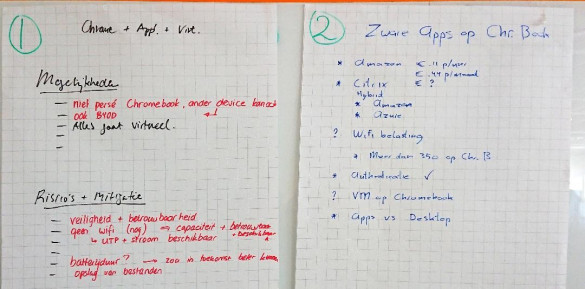 1
Chrome + App. + Virt.
Mogelijkheden
— niet persé Chromebook, ander device kan ook
— ook BYOD
— Alles gaat virtueel.
—
Risico's + Mitigatie
— veiligheid + betrouwbaarheid
— geen wifi (nog) → capaciteit + betrouwbaar
+ beschikbaar
↳ UTP + stroom beschikbaar
— batterijduur? → zou in toekomst beter kunnen
— opslag van bestanden
2
Zware Apps op Chr. Book
* Amazon € 11 p/user
€ 44 p/maand
* Citrix € ?
Hybrid
* Amazon
* Azure
? Wifi belasting
* Meer dan 350 op Chr. B
* Authenticatie ✓
? VM op Chromebook
* Apps vs Desktop